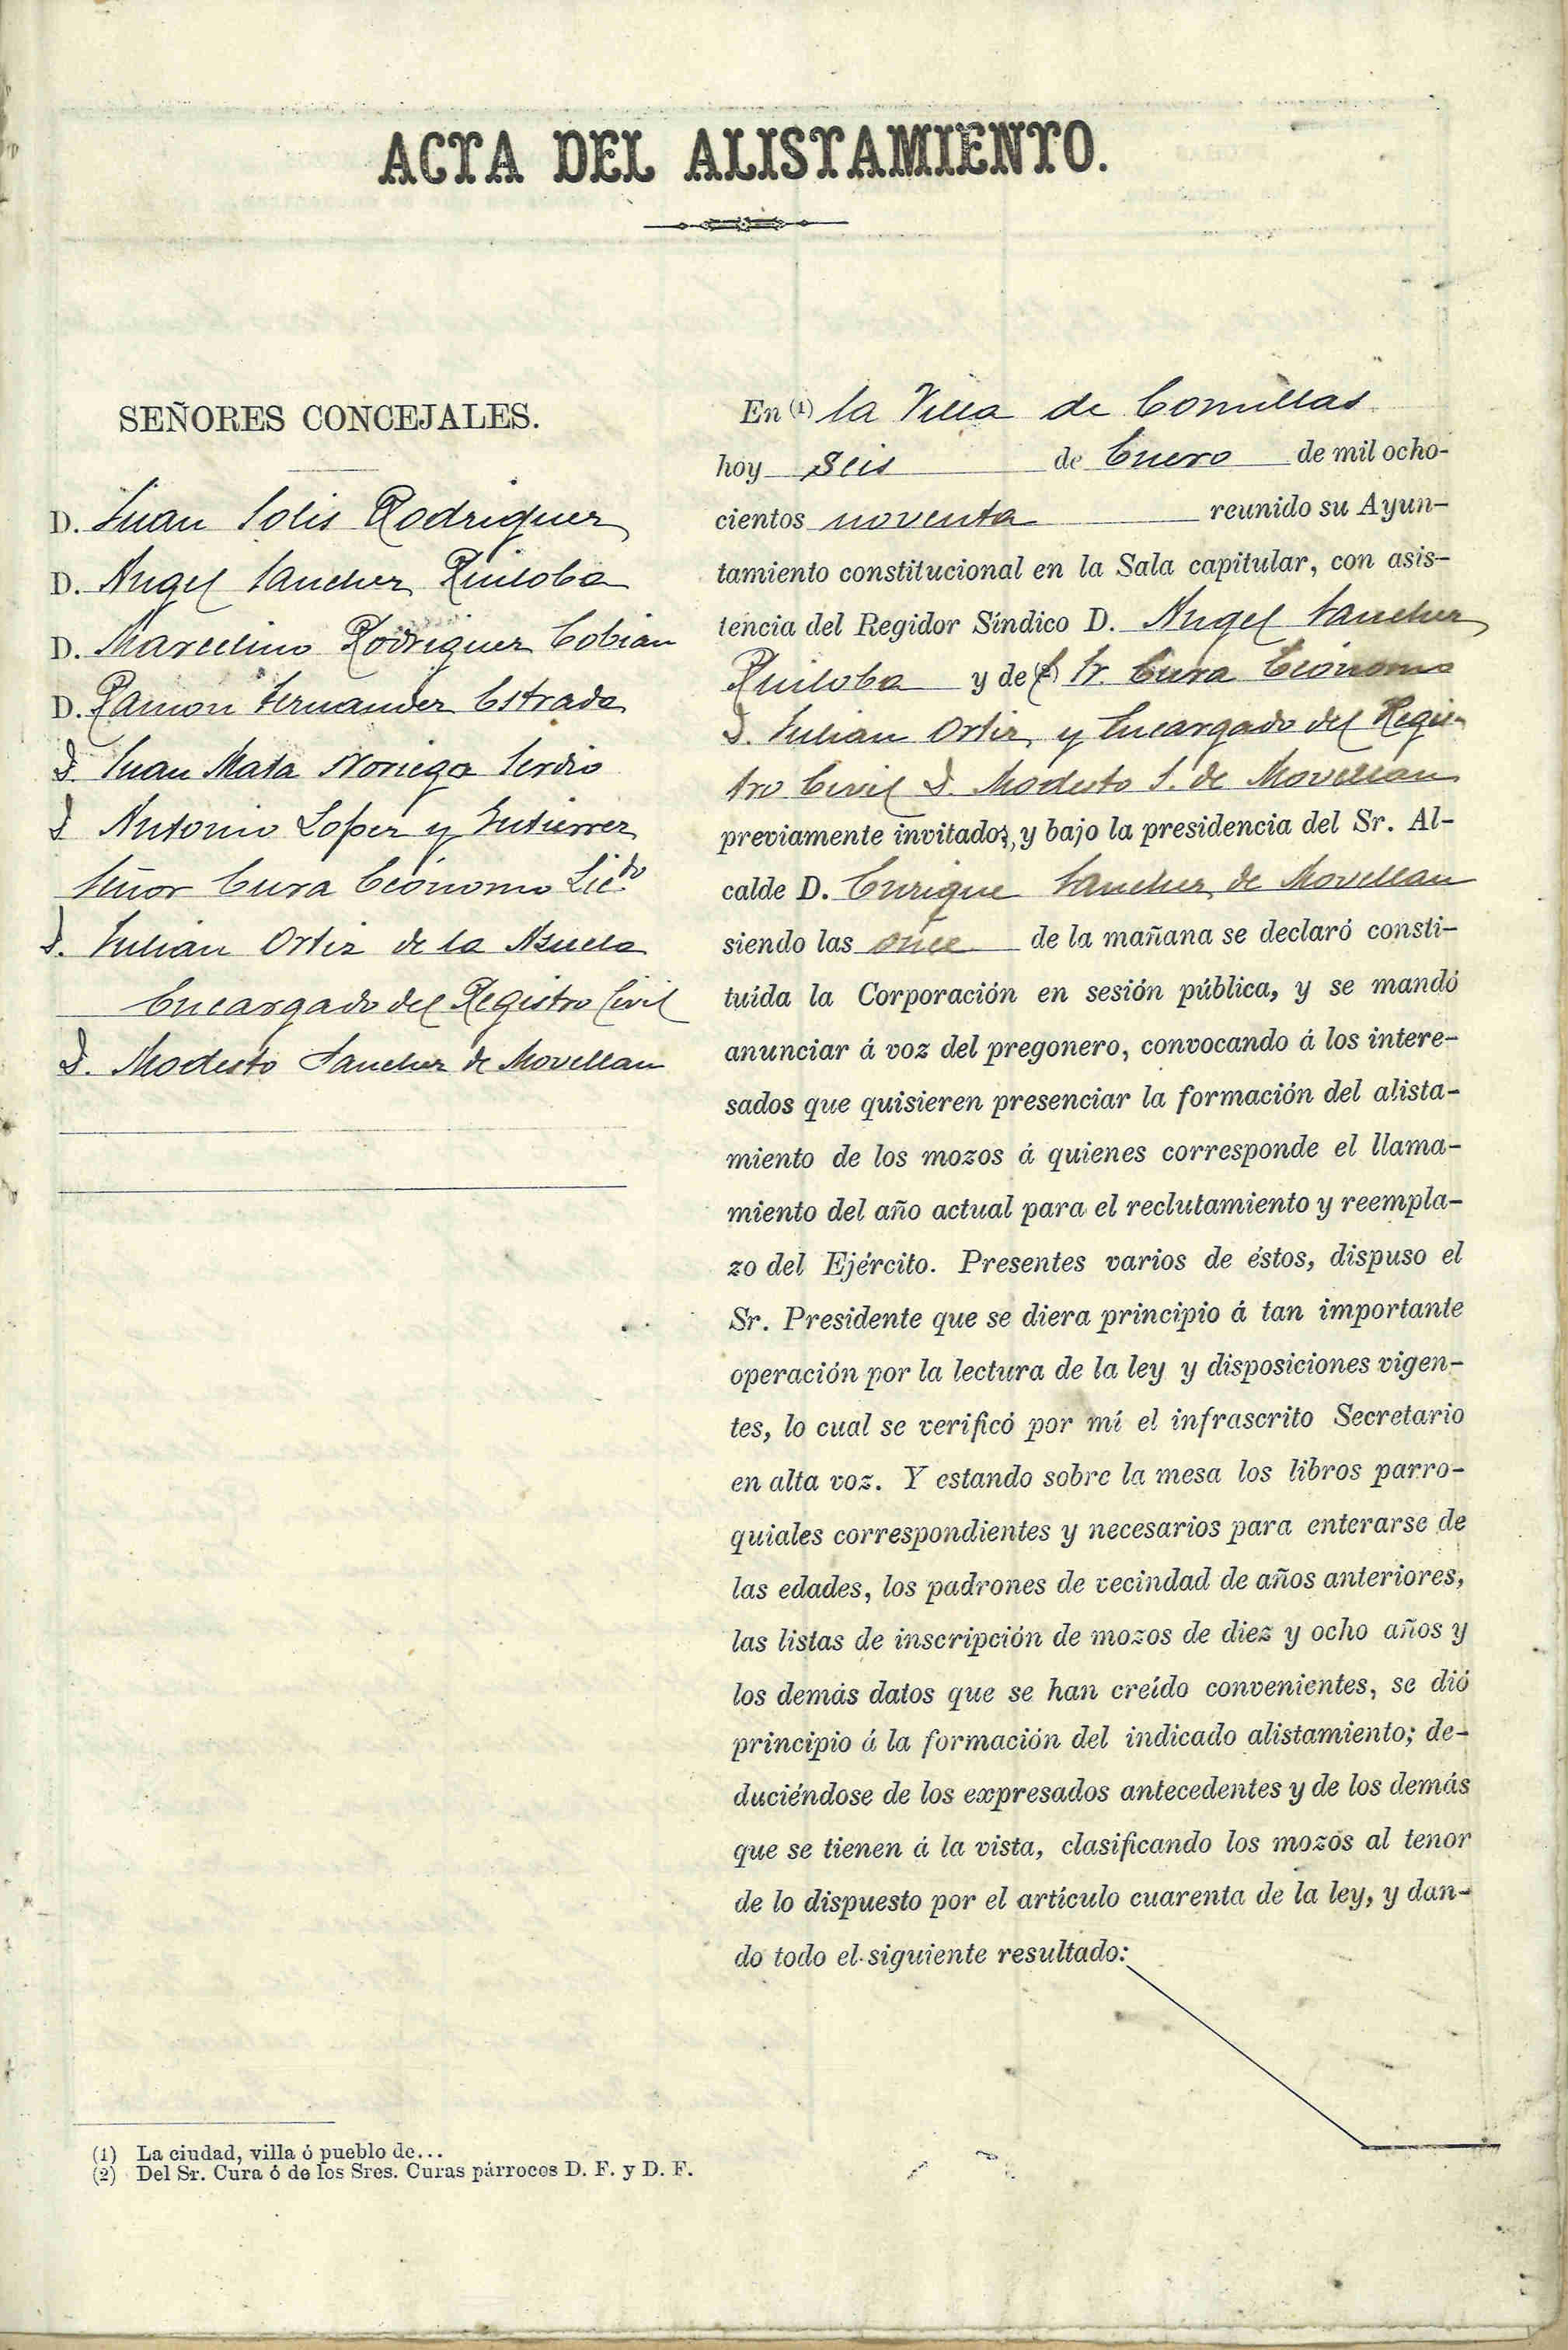 ACTA DEL ALISTAMIENTO.
SEÑORES CONCEJALES.
D. Juan Solis Rodriguez
D. Angel Sanchez Ruiloba
D. Marcelino Rodriguez Cobian
D. Ramon Fernandez Estrada
D. Juan Mata Noriega Serdio
D. Antonio Lopez y Gutierrez
Señor Cura Ecónomo Licdo
D. Julian Ortiz de la Azuela
Encargado del Registro Civil
D. Modesto Sanchez de Movellan
En (1) la Villa de Comillas
hoy seis de Enero de mil ocho-
cientos noventa reunido su Ayun-
tamiento constitucional en la Sala capitular, con asis-
tencia del Regidor Síndico D. Angel Sanchez
Ruiloba y del (2) Sr. Cura Ecónomo
D. Julian Ortiz, y Encargado del Regis-
tro Civil D. Modesto S. de Movellan
previamente invitados, y bajo la presidencia del Sr. Al-
calde D. Enrique Sanchez de Movellan
siendo las once de la mañana se declaró consti-
tuída la Corporación en sesión pública, y se mandó
anunciar á voz del pregonero, convocando á los intere-
sados que quisieren presenciar la formación del alista-
miento de los mozos á quienes corresponde el llama-
miento del año actual para el reclutamiento y reempla-
zo del Ejército. Presentes varios de éstos, dispuso el
Sr. Presidente que se diera principio á tan importante
operación por la lectura de la ley y disposiciones vigen-
tes, lo cual se verificó por mí el infrascrito Secretario
en alta voz. Y estando sobre la mesa los libros parro-
quiales correspondientes y necesarios para enterarse de
las edades, los padrones de vecindad de años anteriores,
las listas de inscripción de mozos de diez y ocho años y
los demás datos que se han creído convenientes, se dió
principio á la formación del indicado alistamiento; de-
duciéndose de los expresados antecedentes y de los demás
que se tienen á la vista, clasificando los mozos al tenor
de lo dispuesto por el artículo cuarenta de la ley, y dan-
do todo el siguiente resultado:
(1) La ciudad, villa ó pueblo de...
(2) Del Sr. Cura ó de los Sres. Curas párrocos D. F. y D. F.